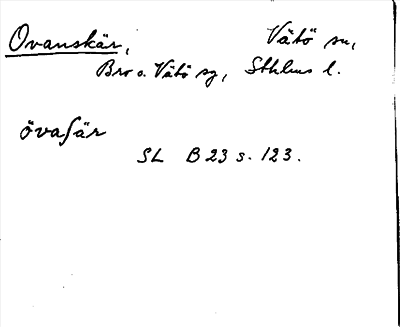 Ovanskär, Vätö sn,
Bro o. Vätö sg, Sthlms l.
övaʃär
SL B 23 s. 123.